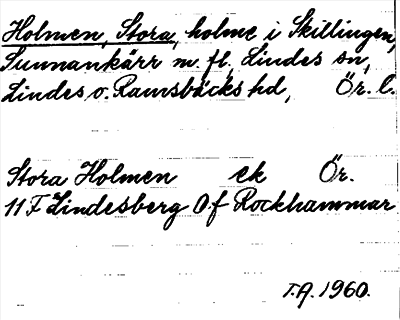 Holmen, Stora, holme i Skillingen,
Sunnankärr m. fl. Lindes sn,
Lindes o. Ramsbäcks hd, Ör. l.
Stora Holmen ek Ör.
11 F Lindesberg 0 f Rockhammar
T.A. 1960.